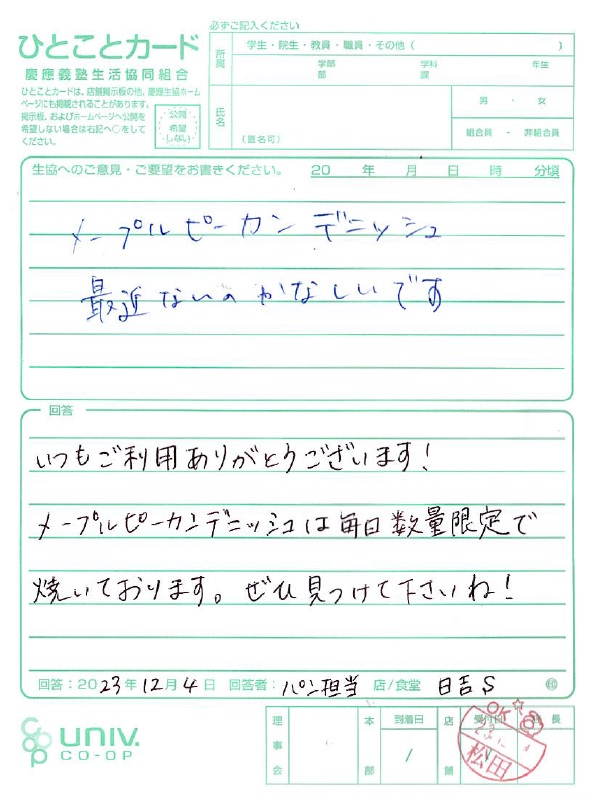 必ずご記入ください
ひとことカード
慶應義塾生活協同組合
ひとことカードは、店舗掲示板の他、慶應生協ホーム
ページにも掲載されることがあります。
掲示板、およびホームページへ公開を
希望しない場合は右記へ○をして
ください。
公開
希望
しない
所属
学生・院生・教員・職員・その他( )
学部 学科 年生
部 課
氏名
(匿名可)
男 ・ 女
組合員 ・ 非組合員
生協へのご意見・ご要望をお書きください。 20 年 月 日 時 分頃
メープルピーカンデニッシュ
最近ないのかなしいです
回答
いつもご利用ありがとうございます!
メープルピーカンデニッシュは毎日数量限定で
焼いております。ぜひ見つけて下さいね!
回答:2023年12月4日 回答者:パン担当 店/食堂 日吉S ㊞
univ.
CO-OP
理事会
本部
到着日
/
店舗
受付日
長
OK
松田